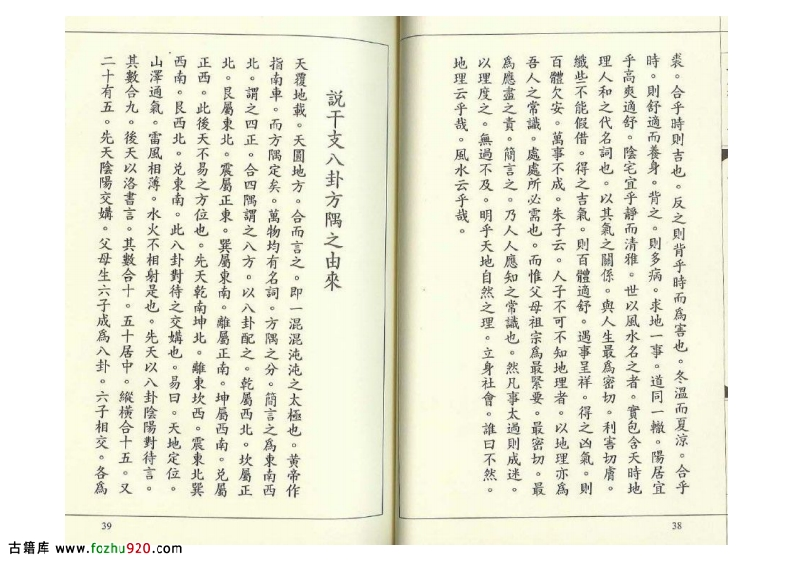 裘。合乎時則吉也。反之則背乎時而為害也。冬溫而夏涼。合乎
時。則舒適而養身。背之。則多病。求地一事。道同一轍。陽居宜
乎高爽適舒。陰宅宜乎靜而清雅。世以風水名之者。實包含天時地
理人和之代名詞也。以其氣之關係。與人生最為密切。利害切膚。
纖些不能假借。得之吉氣。則百體適舒。遇事呈祥。得之凶氣。則
百體欠安。萬事不成。朱子云。人子不可不知地理者。以地理亦為
吾人之常識。處處所必需也。而惟父母祖宗為最緊要。最密切。最
為應盡之責。簡言之。乃人人應知之常識也。然凡事太過則成迷。
以理度之。無過不及。明乎天地自然之理。立身社會。誰曰不然。
地理云乎哉。風水云乎哉。
38
說干支八卦方隅之由來
天覆地載。天圓地方。合而言之。即一混混沌沌之太極也。黃帝作
指南車。而方隅定矣。萬物均有名詞。方隅之分。簡言之為東南西
北。謂之四正。合四隅謂之八方。以八卦配之。乾屬西北。坎屬正
北。艮屬東北。震屬正東。巽屬東南。離屬正南。坤屬西南。兌屬
正西。此後天不易之方位也。先天乾南坤北。離東坎西。震東北巽
西南。艮西北。兌東南。此八卦對待之交媾也。易曰。天地定位。
山澤通氣。雷風相薄。水火不相射是也。先天以八卦陰陽對待言。
其數合九。後天以洛書言。其數合十。五十居中。縱橫合十五。又
二十有五。先天陰陽交媾。父母生六子成為八卦。六子相交。各為
39
古籍库 www.fozhu920.com